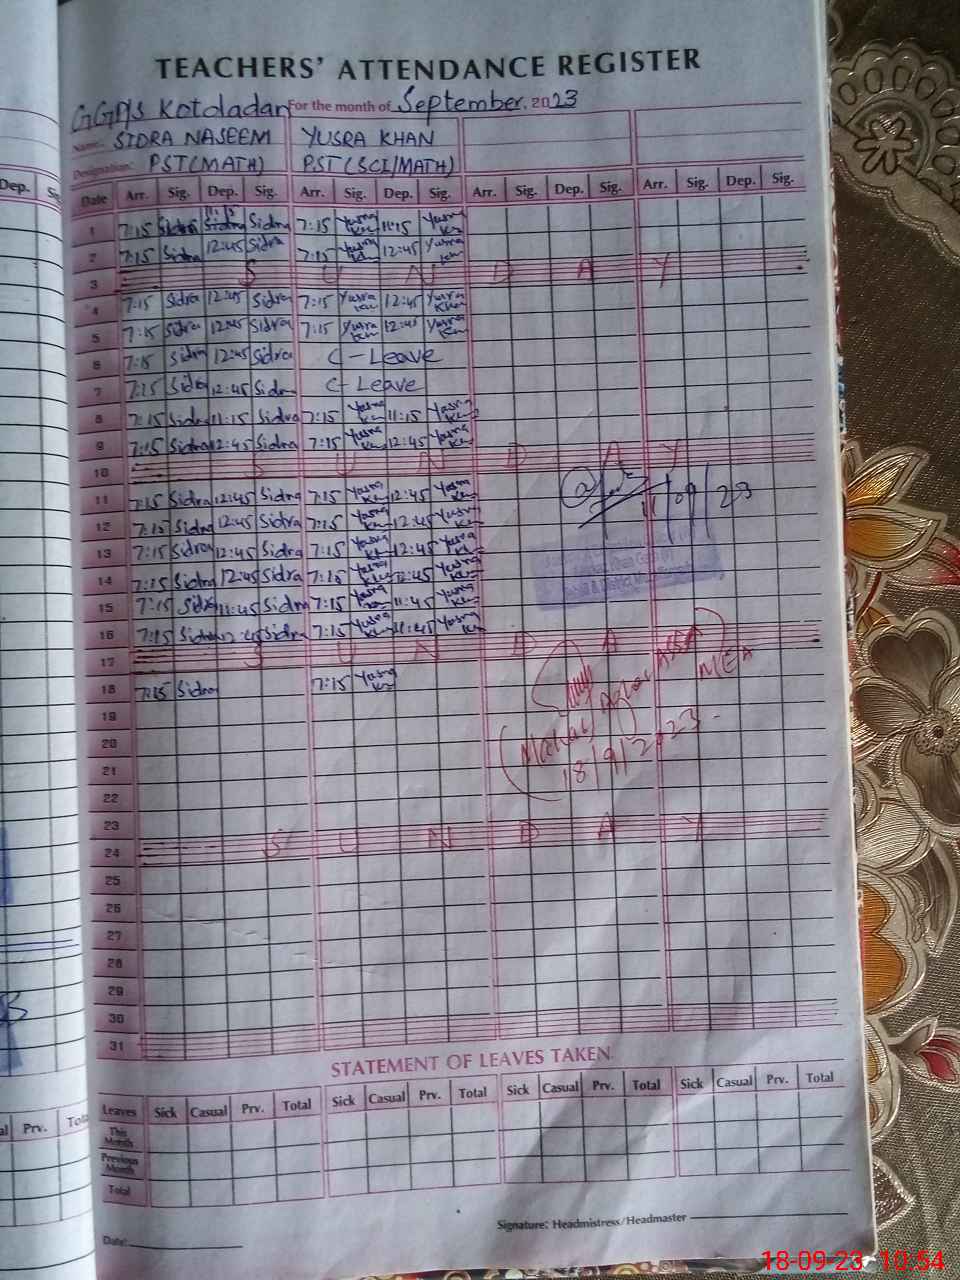 TEACHERS' ATTENDANCE REGISTER
GGPS Kotoladan For the month of September. 2023
Name: SIDRA NASEEM YUSRA KHAN
Designation: PST(MATH) PST(SCI/MATH)
Date Arr. Sig. Dep. Sig. Arr. Sig. Dep. Sig. Arr. Sig. Dep. Sig. Arr. Sig. Dep. Sig.
1 7:15 Sidra 11:15 Sidra Sidra 7:15 Yusra Khn 11:15 Yusra Khn
2 7:15 Sidra 12:45 Sidra 7:15 Yusra Khn 12:45 Yusra Khn
3 S U N D A Y
4 7:15 Sidra 12:45 Sidra 7:15 Yusra Khn 12:45 Yusra Khn
5 7:15 Sidra 12:45 Sidra 7:15 Yusra Khn 12:45 Yusra Khn
6 7:15 Sidra 12:45 Sidra C-Leave
7 7:15 Sidra 12:45 Sidra C-Leave
8 7:15 Sidra 11:15 Sidra 7:15 Yusra Khn 11:15 Yusra Khn
9 7:15 Sidra 12:45 Sidra 7:15 Yusra Khn 12:45 Yusra Khn
10 S U N D A Y
11 7:15 Sidra 12:45 Sidra 7:15 Yusra Khn 12:45 Yusra Khn 11/09/23
12 7:15 Sidra 12:45 Sidra 7:15 Yusra Khn 12:45 Yusra Khn
13 7:15 Sidra 12:45 Sidra 7:15 Yusra Khn 12:45 Yusra Khn
14 7:15 Sidra 12:45 Sidra 7:15 Yusra Khn 12:45 Yusra Khn
15 7:15 Sidra 11:45 Sidra 7:15 Yusra Khn 11:45 Yusra Khn
16 7:15 Sidra 12:45 Sidra 7:15 Yusra Khn 11:45 Yusra Khn
17 S U N D A Y
18 7:15 Sidra 7:15 Yusra Khn
MEA
19
20
18/9/2023
21
22
23
24 S U N D A Y
25
26
27
28
29
30
31
STATEMENT OF LEAVES TAKEN
Leaves Sick Casual Prv. Total Sick Casual Prv. Total Sick Casual Prv. Total Sick Casual Prv. Total
This Month
Previous Month
Total
Signature: Headmistress/Headmaster
Date:
18-09-23 10:54
Dep.
Prv.